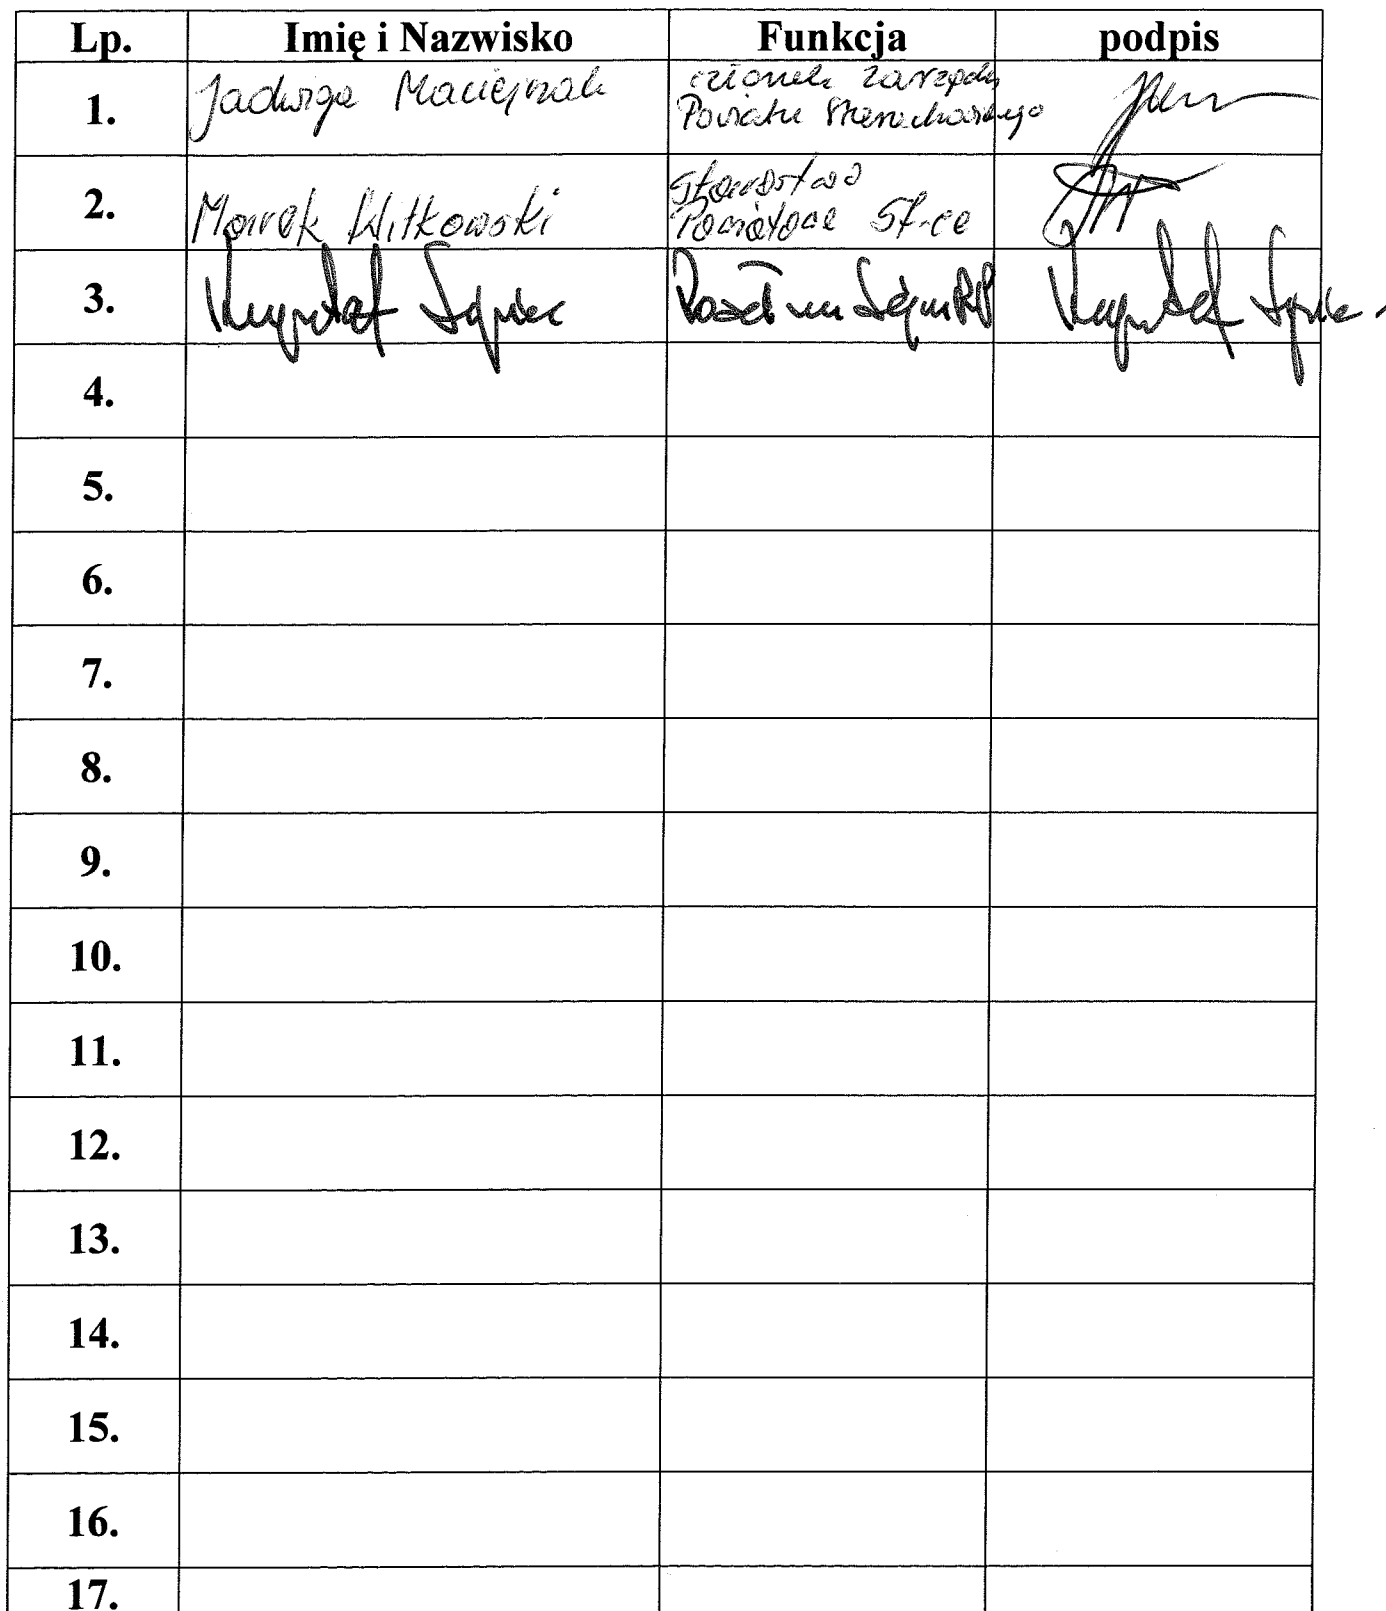 Lp. Imię i Nazwisko Funkcja podpis
1. Jadwiga Maciejczak członek Zarządu
Powiatu Starachowickiego
2. Marek Witkowski Starostwo
Powiatowe St-ce
3. Krzysztof Lipiec Poseł na Sejm RP Krzysztof Lipiec
4.
5.
6.
7.
8.
9.
10.
11.
12.
13.
14.
15.
16.
17.